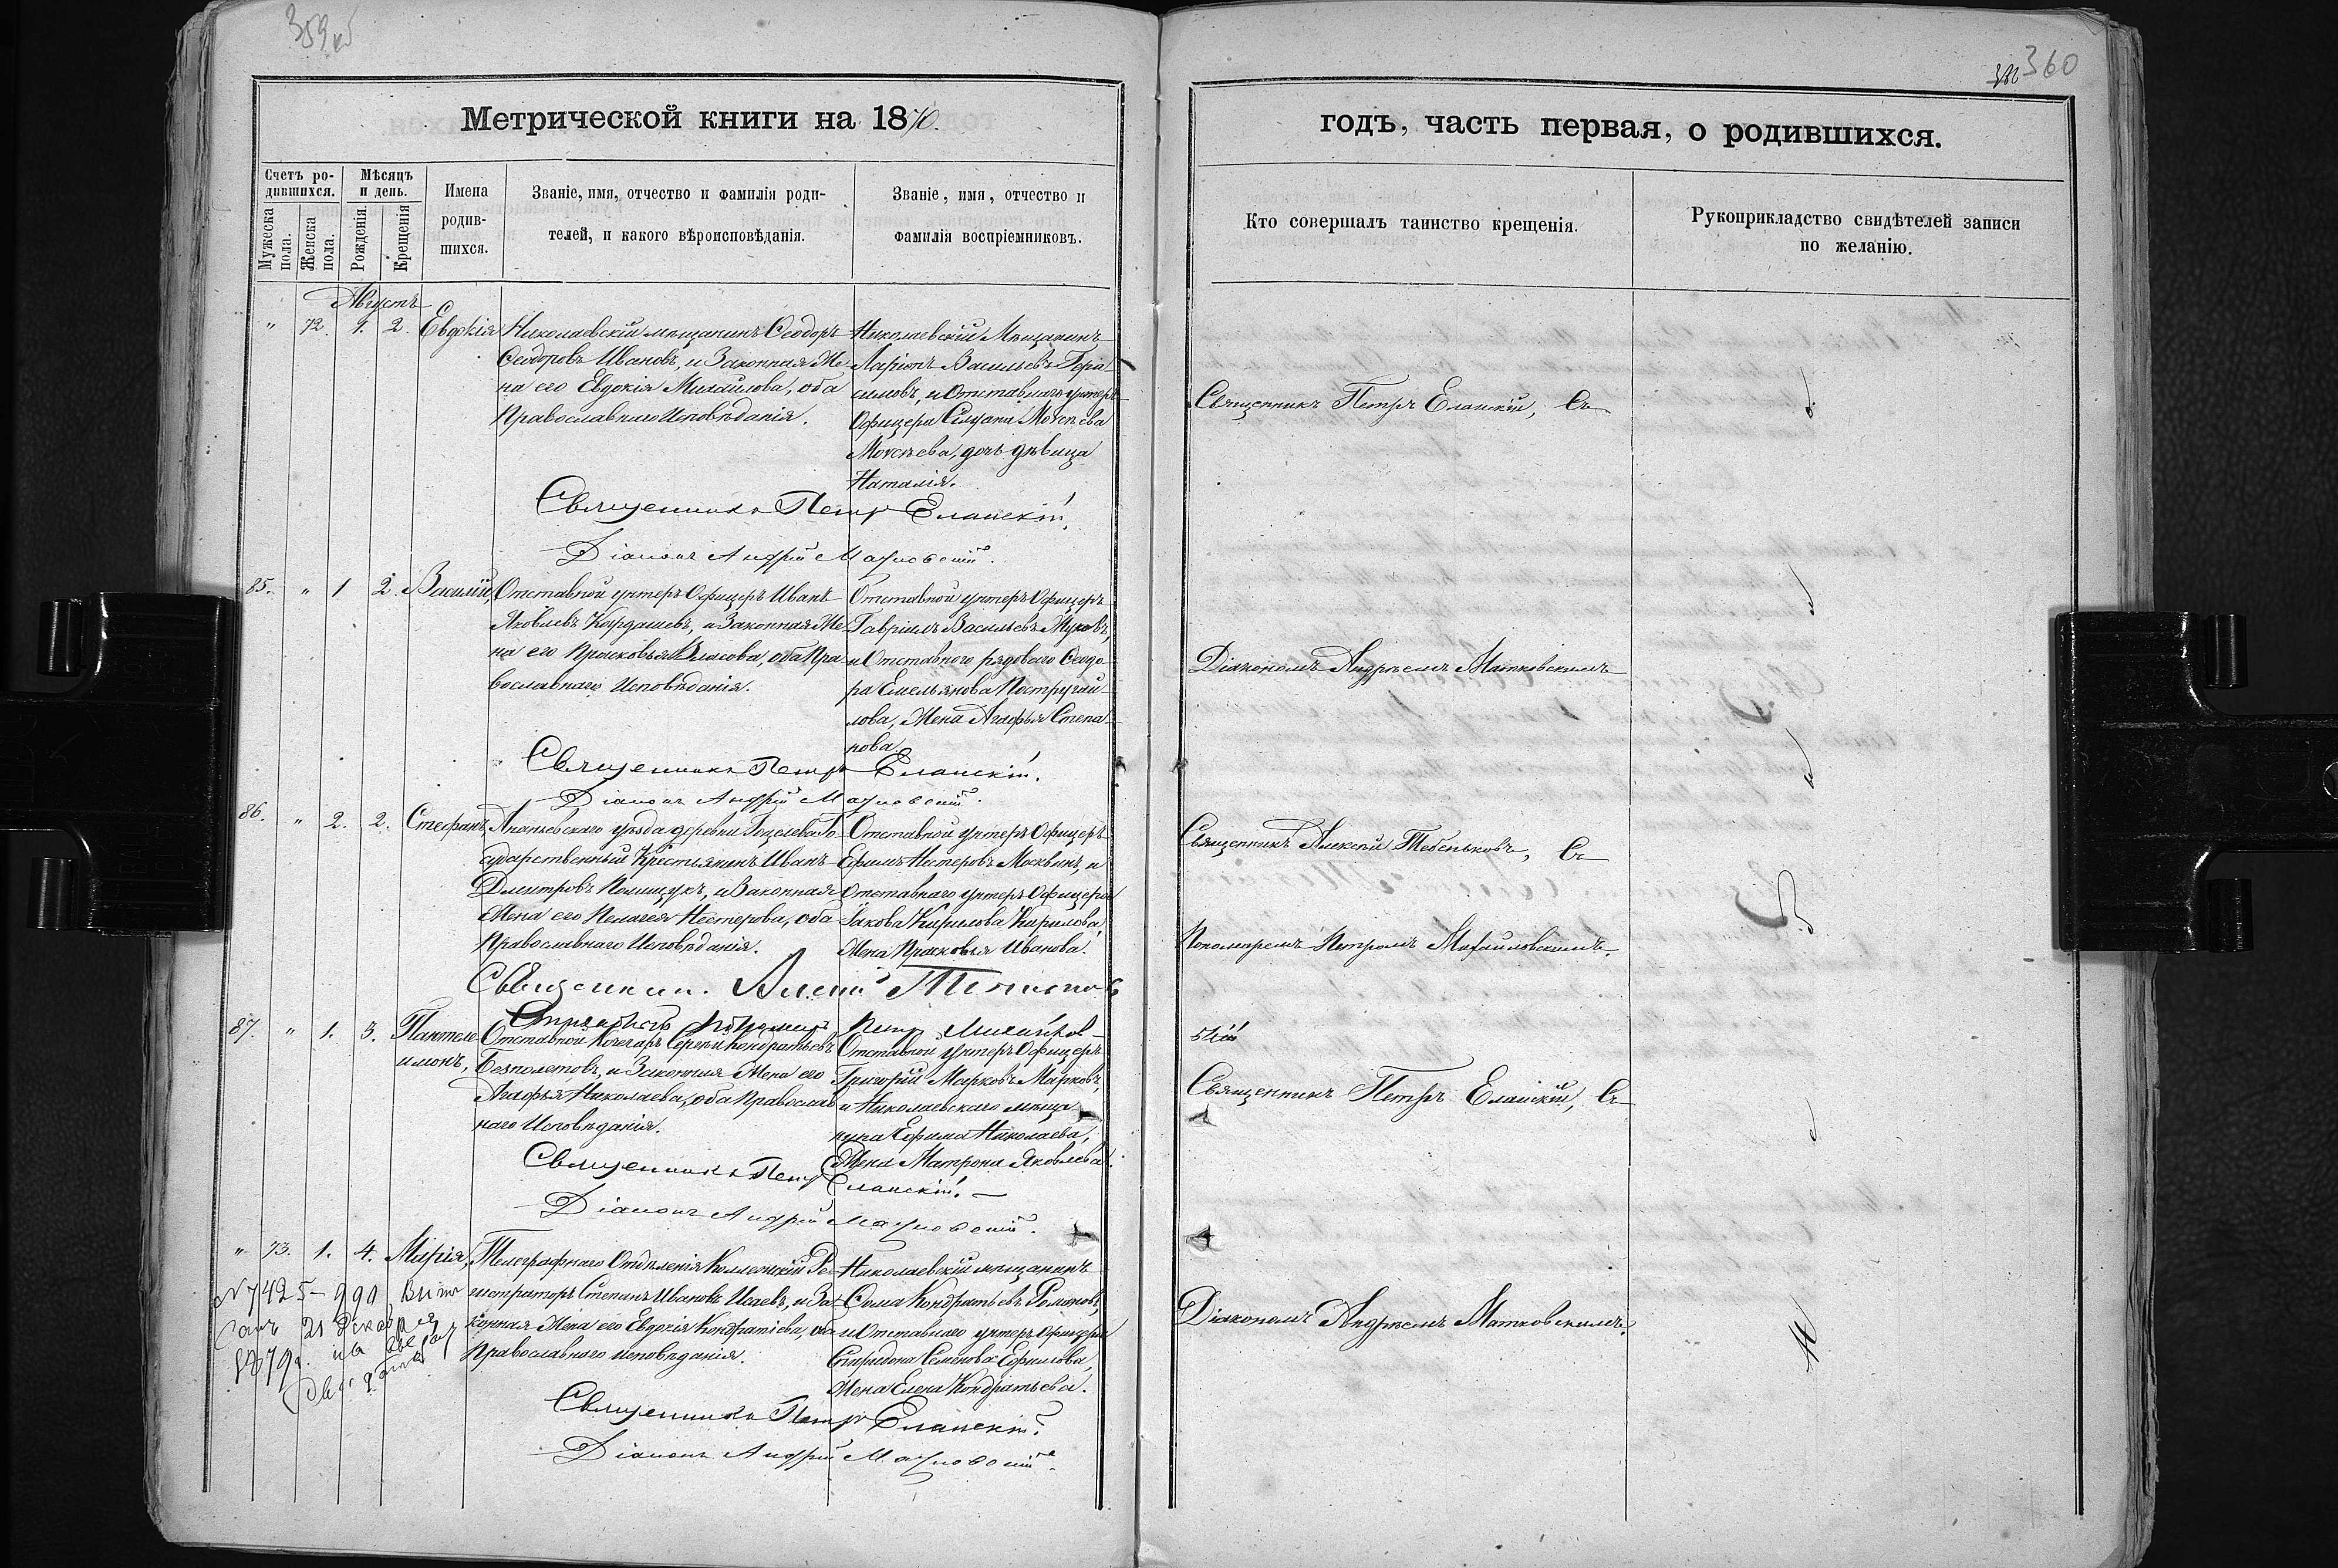 359 об
360
Метрической книги на 1870.
годъ, часть первая, о родившихся.
Счетъ родившихся.
Мужеска пола.
Женска пола.
Мѣсяцъ и день.
Рожденія.
Крещенія
Имена родившихся.
Званіе, имя, отчество и фамилія родителей, и какого вѣроисповѣданія.
Званіе, имя, отчество и фамилія воспріемниковъ.
Кто совершалъ таинство крещенія.
Рукоприкладство свидѣтелей записи по желанію.
Августъ
" 72. 1. 2. Евдокія
Николаевскій мѣщанинъ Ѳеодоръ
Ѳеодоровъ Ивановъ, и Законная Же-
на его Евдокія Михайлова, оба
Православнаго Исповѣданія.
Николаевскій Мѣщанинъ
Ларіонъ Васильевъ Гера-
симовъ, и Отставнаго унтеръ
Офицера Моисѣева
Моисѣева, дочь дѣвица
Наталія.
Священникъ Петръ Еланскій, Съ
Священникъ Петръ Еланскій.
Діаконъ Андрей Матковскій.
85. " 1 2. Василій,
Отставной унтеръ Офицеръ Иванъ
Яковлевъ Кардашевъ, и Законная Же-
на его Прасковья Власова, оба Пра-
вославнаго Исповѣданія.
Отставной унтеръ Офицеръ
Гавріилъ Васильевъ Жуковъ,
и Отставнаго рядоваго Ѳеодо-
ра Емельянова
лова, Жена Агафья Степа-
нова.
Діакономъ Андреемъ Матковскимъ
Священникъ Петръ Еланскій.
Діаконъ Андрей Матковскій.
86. " 2. 2. Стефанъ,
Ананьевскаго уѣзда деревни Гоцелева Го-
сударственный Крестьянинъ Иванъ
Дмитровъ Полищукъ, и Законная
Жена его Пелагея Нестерова, оба
Православнаго Исповѣданія.
Отставной унтеръ Офицеръ
Ефимъ Нестеровъ Москвинъ, и
Отставнаго унтеръ Офицера
Іакова Кирилова Кирилова,
Жена Прасковья Иванова.
Священникъ Алексѣй Тебеньковъ, Съ
Пономаремъ Петромъ Михайловскимъ.
Священникъ Алексій
Петръ Михайлов-
скій
87. " 1. 3. Пантеле-
имонъ,
Отставной Кочегаръ Сергѣй Кондратьевъ
Безполетовъ, и Законная Жена его
Агафья Николаева, оба Православ-
наго Исповѣданія.
Отставной Унтеръ Офицеръ
Григорій Марковъ Марковъ,
и Николаевскаго мѣща-
нина Ефима Николаева,
Жена Матрона Яковлева.
Священникъ Петръ Еланскій, Съ
Священникъ Петръ Еланскій. —
Діаконъ Андрей Матковскій.
" 73. 1. 4. Марія,
Телеграфнаго Отдѣленія Коллежскій Ре-
гистраторъ Степанъ Ивановъ Исаевъ, и За-
конная Жена его Евдокія Кондратіева, оба
Православнаго исповѣданія.
Николаевскій мѣщанинъ
Ѳома Кондратьевъ Романовъ,
и Отставнаго унтеръ Офицера
Спиридона Семенова Ефимова,
Жена Елена Кондратьева.
Діакономъ Андреемъ Матковскимъ.
N 7425
21 Декабря
1879 г.
Священникъ Петръ Еланскій.
Діаконъ Андрей Матковскій.